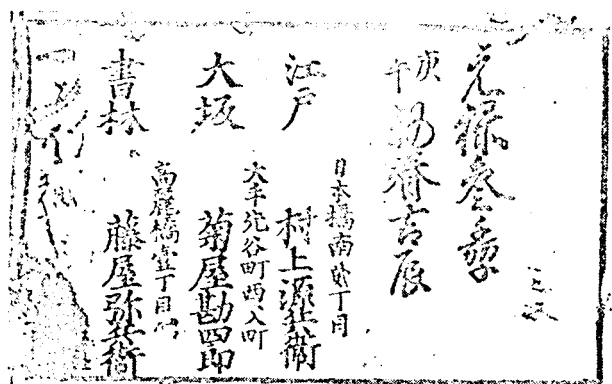 元禄叁季
庚午 初春吉辰
江戸
日本橋南貮丁目
村上源兵衛
大坂
大手筋谷町西入町
菊屋勘四郎
書林
高麗橋壹丁目
藤屋弥兵衛